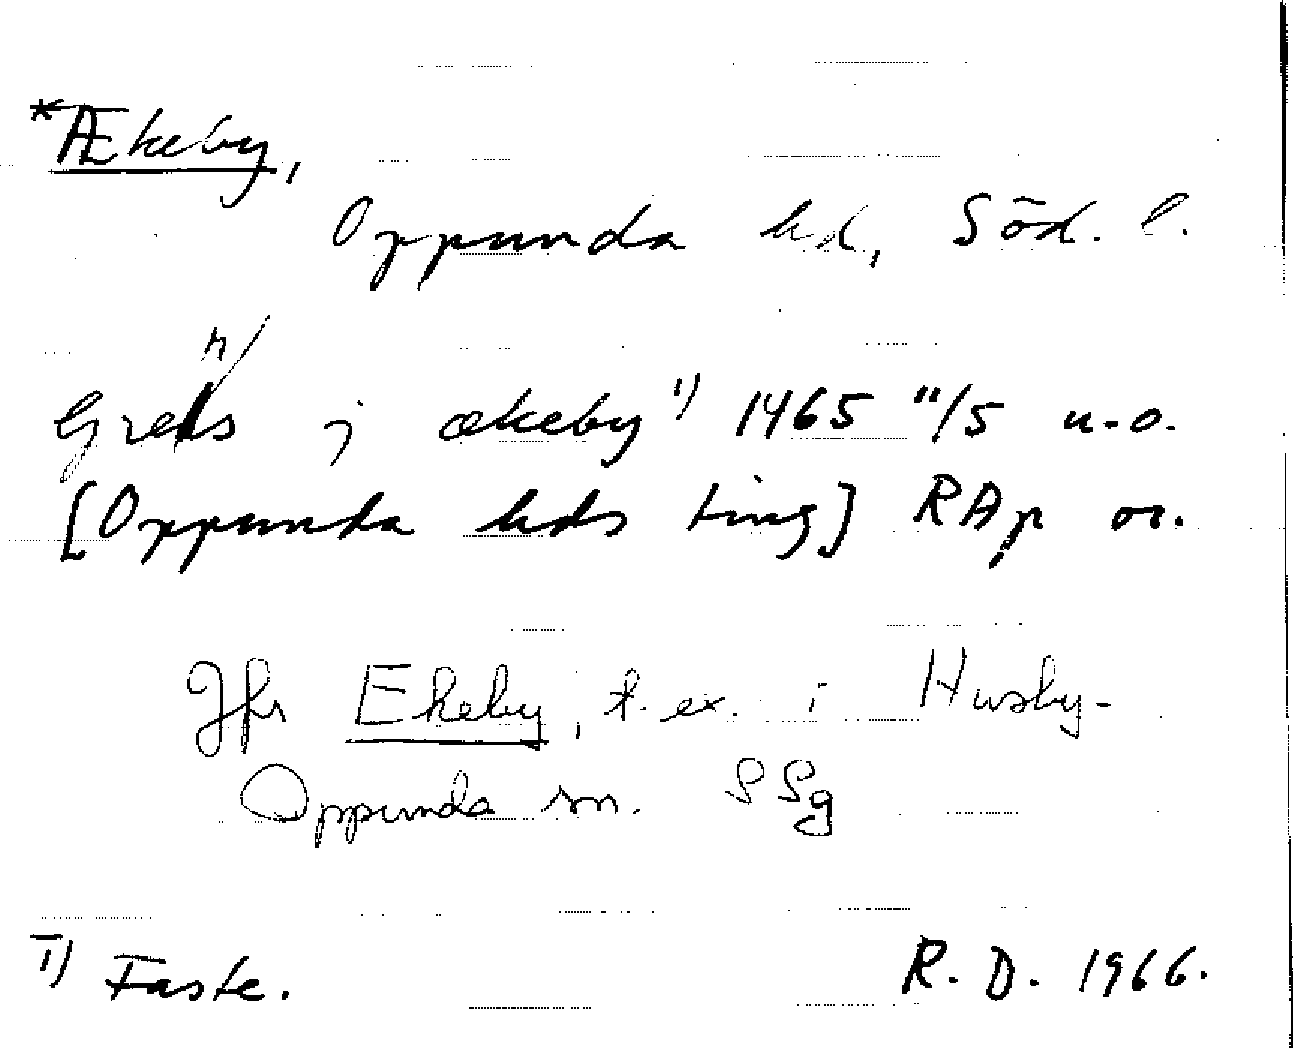 *Ækeby,
Oppunda hd, Söd. l.
Grens j ækeby 1) 1465 11/5 u.o.
[Oppunda hds ting] RAp or.
Jfr Ekeby, t. ex. i Husby-
Oppunda sn. SSg
1) Faste.
R. D. 1966.